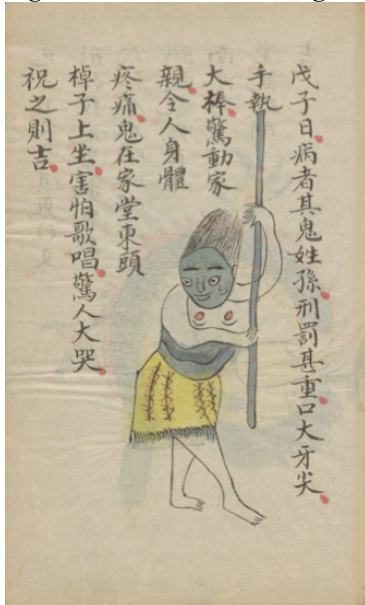 戊子日病者其鬼姓孫刑罰甚重口大牙尖
手執
大棒驚動家
親令人身體
疼痛鬼在家堂東頭
棹子上坐害怕歌唱驚人大哭
祝之則吉